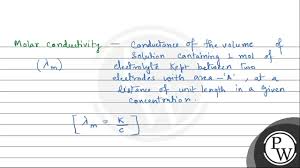 Molar conductivity — Conductance of the volume of
(λm) solution containing 1 mol of
electrolyte kept between two
electrodes with area 'A', at a
distance of unit length in a given
concentration.
[λm = K/C]
PW